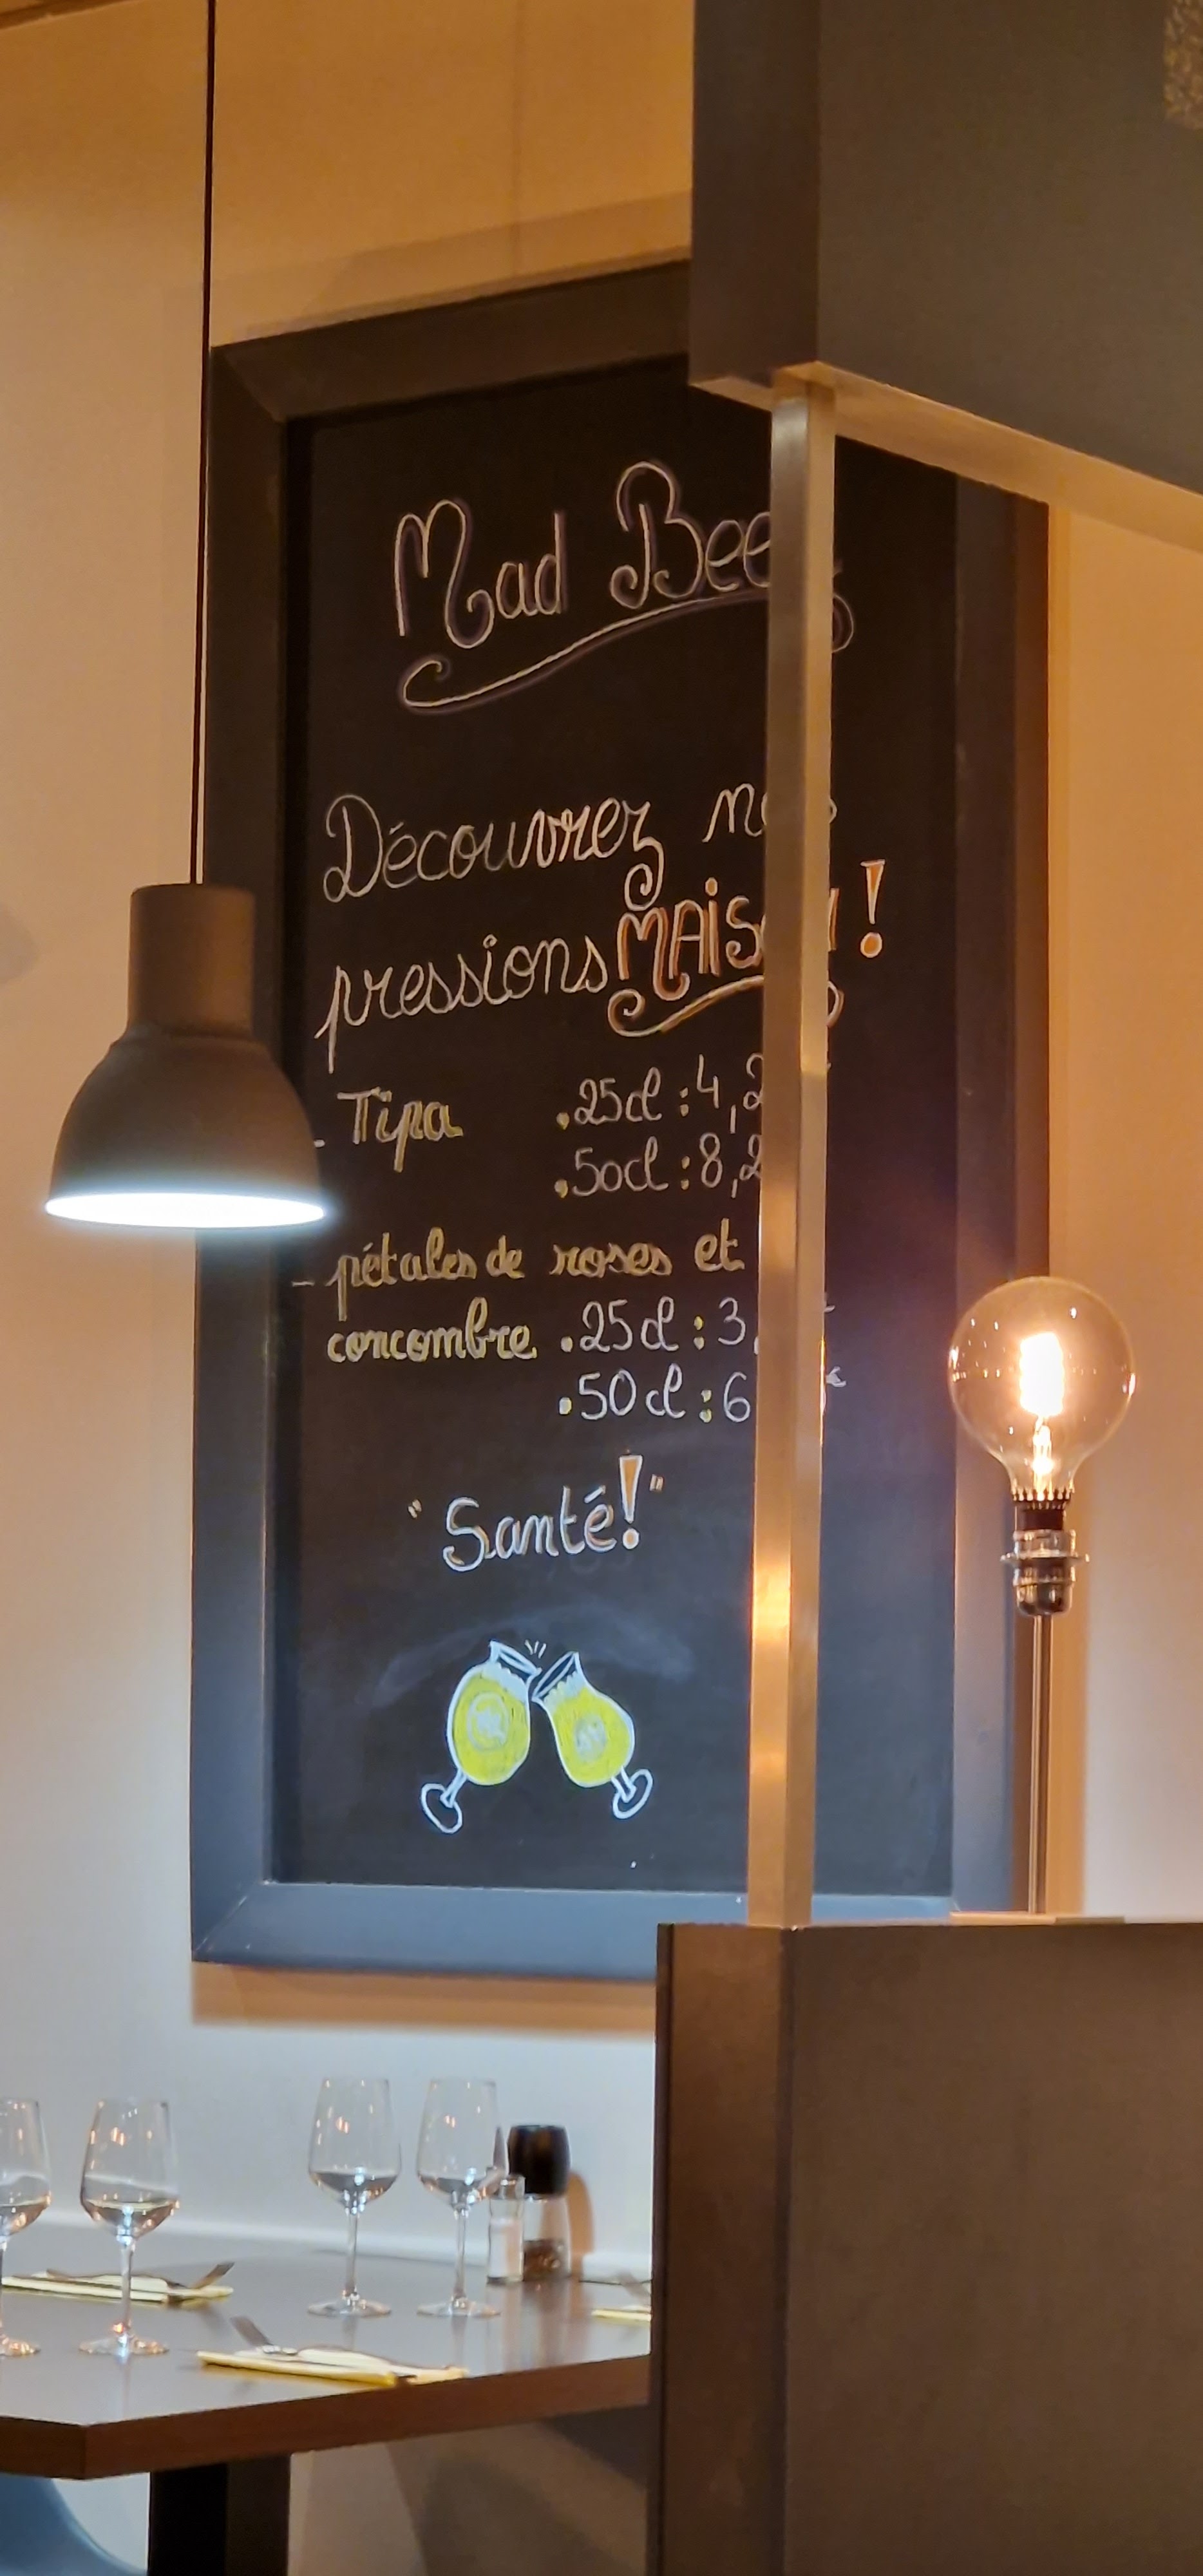 Mad Bee
Découvrez
pressions MAISON !
- Tipa .25cl : 4,2
.50cl : 8,2
- pétales de roses et
concombre .25cl : 3,
.50cl : 6 €
"Santé!"